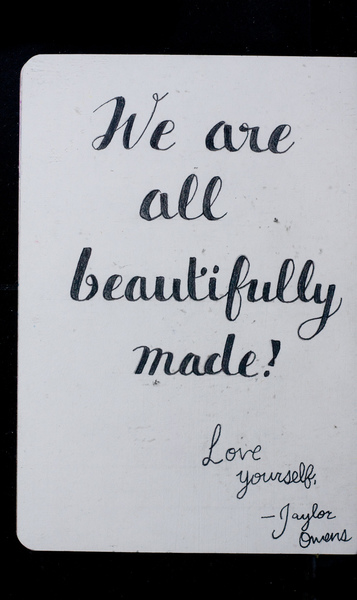 We are
all
beautifully
made!
Love
yourself,
- Jaylor
Owens